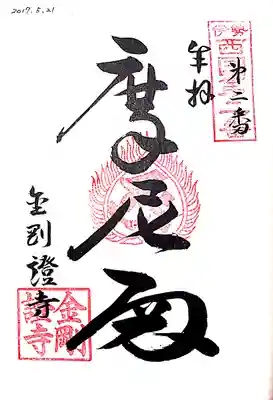 2017.5.21
伊勢
西国
第二番
奉拝
摩尼殿
金剛證寺
金剛
證寺